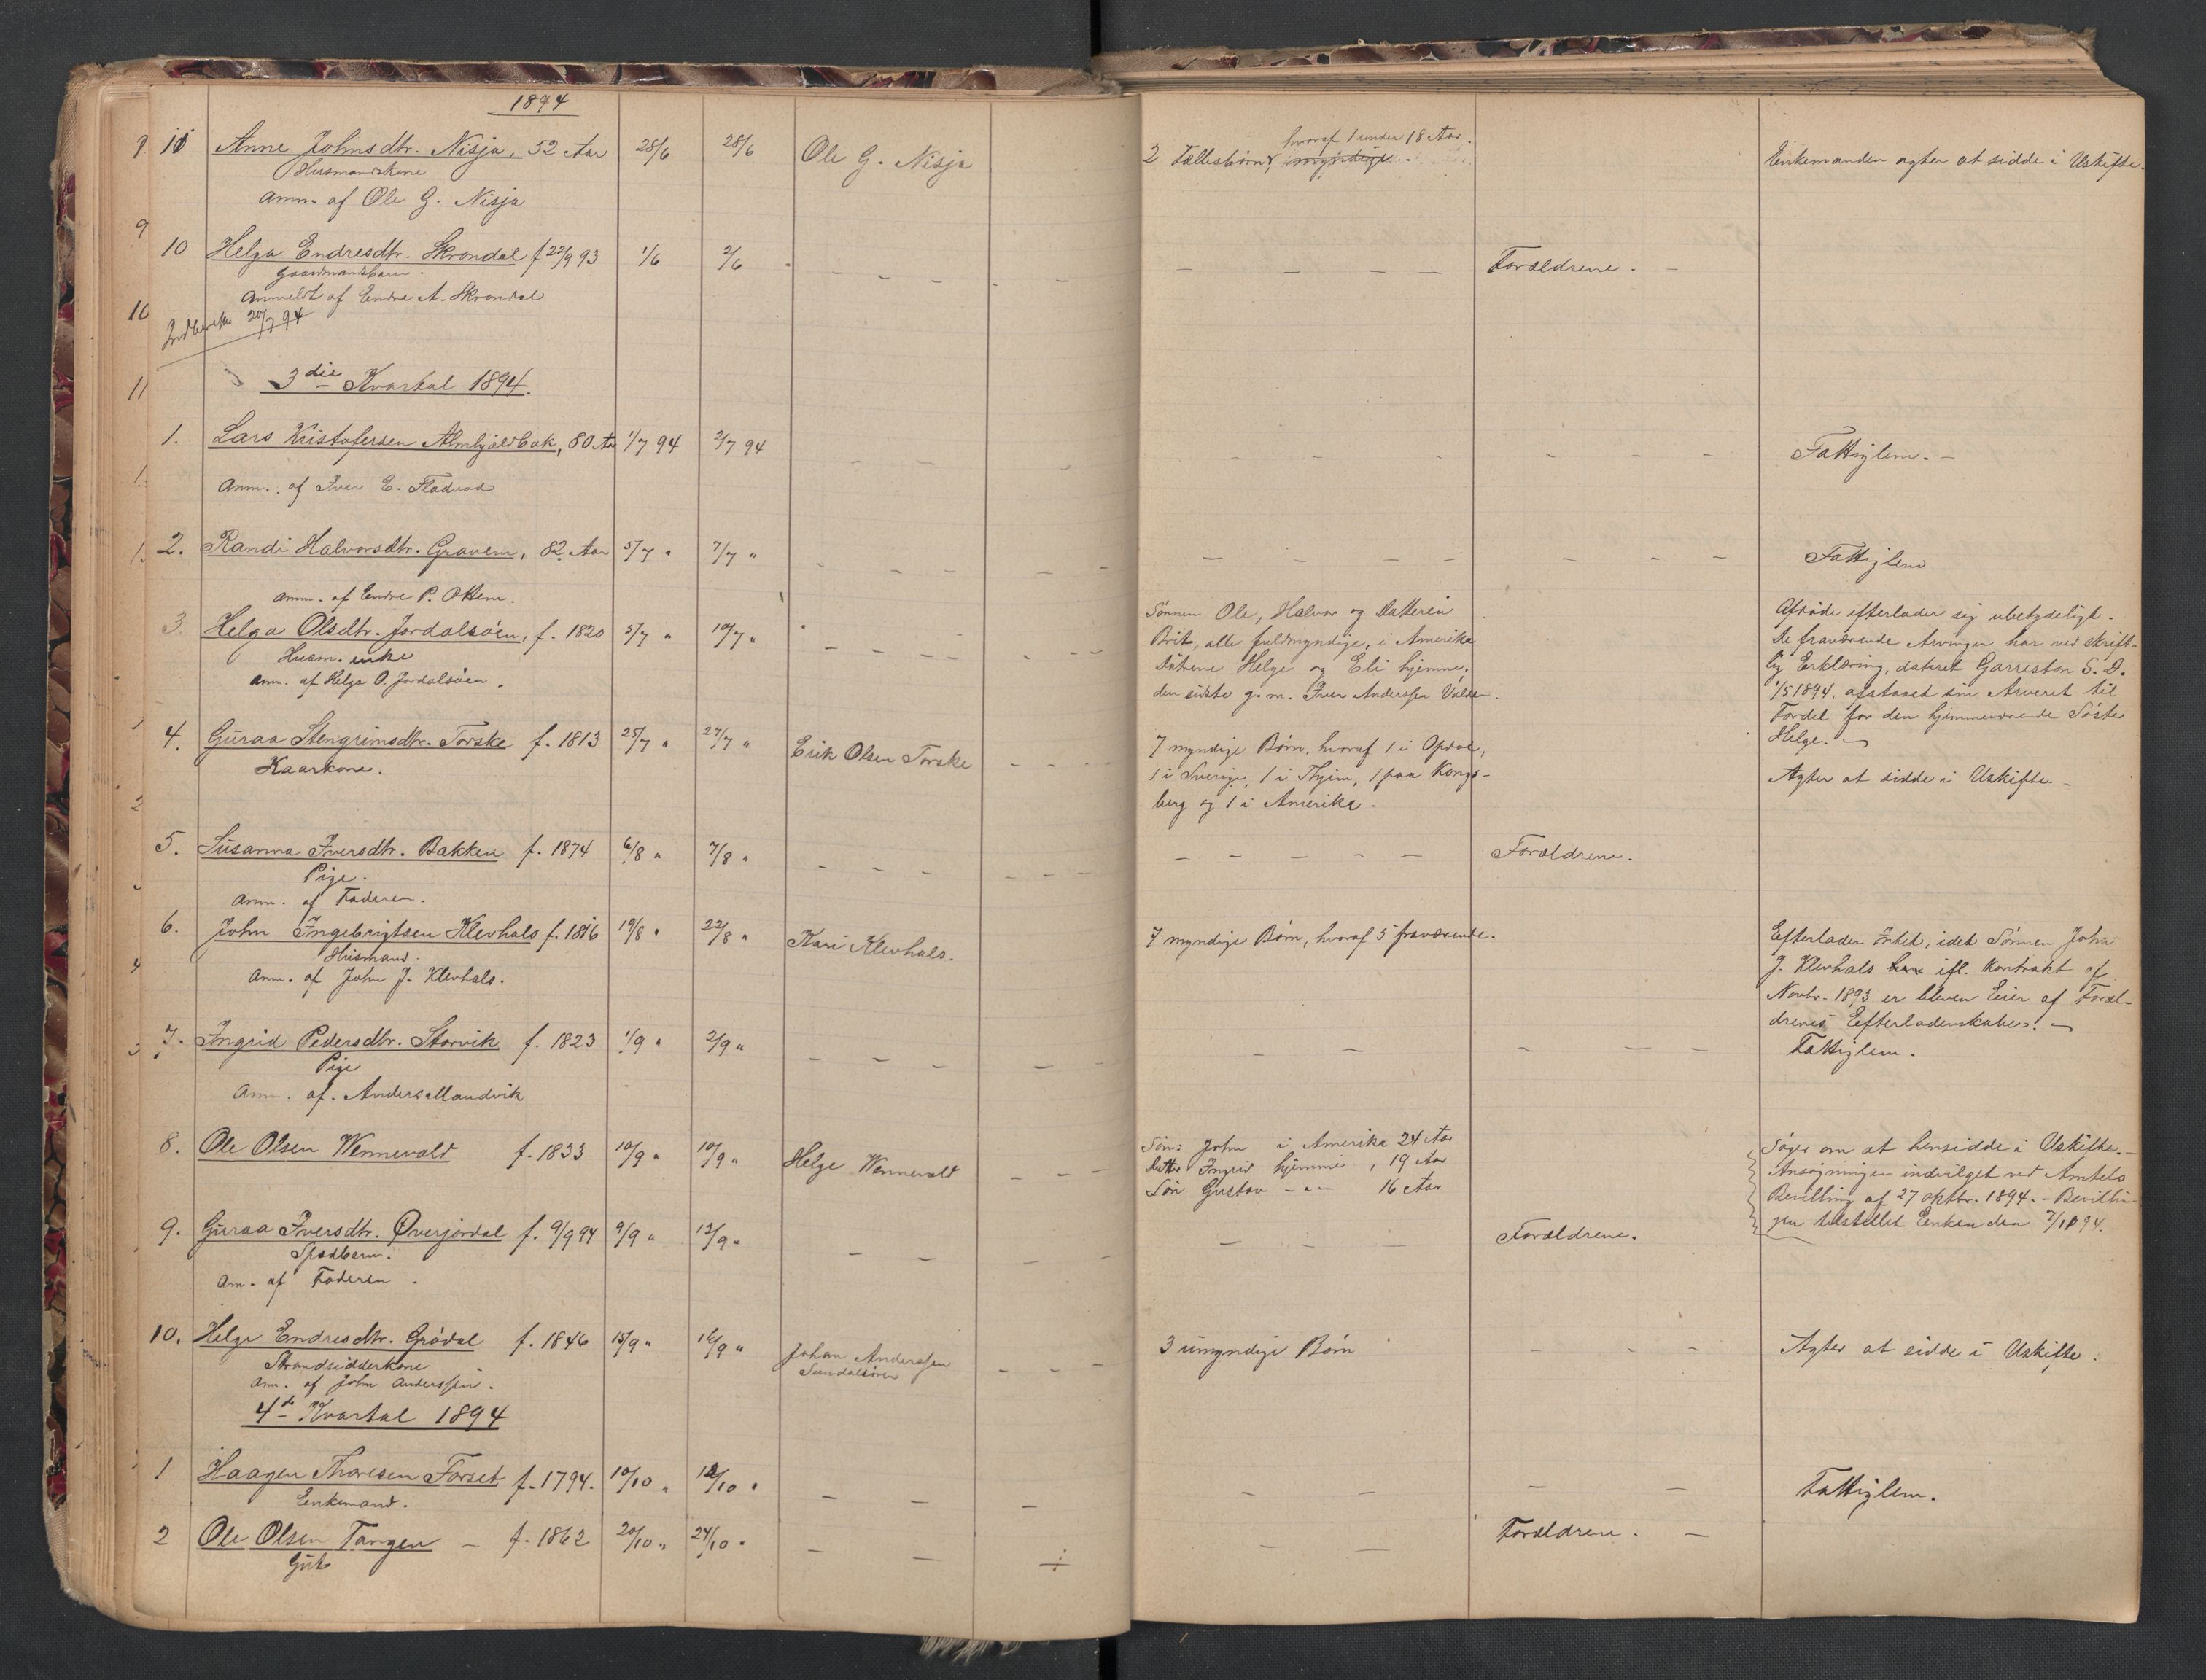 1894
11 Anne Johnsdtr. Nisja, 52 Aar 28/6 28/6 Ole G. Nisja 2 Fællesbørn, hvoraf 1 under 18 Aar. myndige. Enkemanden agter at sidde i Uskifte.
Husmandskone
Anm. af Ole G. Nisja
10 Helga Endresdtr. Skrondal f 22/9 93 1/6 2/6 - - - - - - - - Forældrene. -
Gaardmandsbarn.
Anmeldt af Endre A. Skrondal
Indberettet 20/7 94
3die Kvartal 1894.
1. Lars Kristofersen 80 Aar 1/7 94 2/7 94 - - - - - - - - - - Fattiglem. -
Anm. af Iver E. Fladvad
2. Randi Halvorsdtr. Gravem, 82 Aar 5/7 " 7/7 " - - - - - - - - - - - - Fattiglem
Anm. af Endre P. Ottem.
3. Helga Olsdtr. Jordalsøen, f. 1820 5/7 " 10/7 " - - - - - - -
Husm. enke
Anm. af Helga O. Jordalsøen.
Sønnen Ole, Halvor og Datteren
Brit, alle fuldmyndige, i Amerika
Døtrene Helge og Eli hjemme,
den sidste g. m. Iver Anderssen
Afdøde efterlader sig ubetydeligt.
De fraværende Arvinger har ved skrift-
lig Erklæring, dateret Garreston S. D.
1/5 1894, afstaaet sin Arveret til
Fordel for den hjemmeværende Søster
Helge. -
4. Guraa Stengrimsdtr. Torske f. 1813 25/7 " 27/7 " Erik Olsen Torske - - - 7 myndige Børn, hvoraf 1 i Opdal,
Kaarkone.
1 i Sverige, 1 i Thjem, 1 paa Kongs-
berg og 1 i Amerika.
Agter at sidde i Uskifte. -
5. Susanna Iversdtr. Bakken f. 1874 6/8 " 7/8 " - - - - - - - - - - - Forældrene.
Pige.
Anm. af Faderen.
6. John Ingebrigtsen Klevhals f. 1816 19/8 " 22/8 " Kari Klevhals. 7 myndige Børn, hvoraf 5 fraværende.
Husmand.
Anm. af John J. Klevhals.
Efterlader Intet, idet Sønnen John
J. Klevhals har ifl. Kontrakt af
Novbr. 1893 er bleven Eier af Foræl-
drenes Efterladenskaber. -
7. Ingrid Pedersdtr. Storvik f. 1823 1/9 " 2/9 " - - - - - - - - - - Fattiglem.
Pige
Anm. af Anders Mandvik
8. Ole Olsen Wennevald f. 1833 10/9 " 10/9 " Helge Wennevald - -
Søn: John i Amerika 24 Aar
Datter Ingrid hjemme, 19 Aar
Søn Gustav - " - 16 Aar
Søger om at hensidde i Uskifte. -
Ansøgningen indvilget ved Amtets
Bevilling af 27 oktbr. 1894. - Bevillin-
gen tilstillet Enken den 7/11 94.
9. Guraa Iversdtr. Øverjordal f. 9/9 94 9/9 " 12/9 " - - - - - - - Forældrene.
Spædbarn.
Anm. af Faderen.
10. Helge Endresdtr. Grødal f. 1846 15/9 " 16/9 " Johan Anderssen - - - 3 umyndige Børn - - - Agter at sidde i Uskifte.
Sundalsøren
Strandsidderkone
Anm. af John Anderssen.
4de Kvartal 1894
1 Haagen Thoresen Forset f. 1794. 10/10 " 12/10 " - - - - - - - - Fattiglem.
Enkemand.
2 Ole Olsen Tangen - f. 1862 20/10 " 24/10 " - - ÷ - - Forældrene. -
Gut